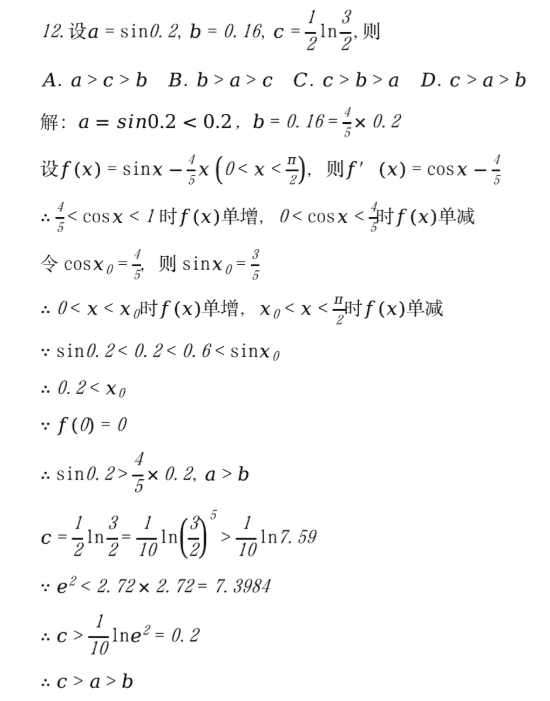 12.设a = sin0.2, b = 0.16, c = 1/2 ln 3/2, 则
A. a > c > b B. b > a > c C. c > b > a D. c > a > b
解: a = sin0.2 < 0.2, b = 0.16 = 4/5 × 0.2
设f(x) = sinx − 4/5 x (0 < x < π/2), 则f′ (x) = cosx − 4/5
∴ 4/5 < cosx < 1时f(x)单增, 0 < cosx < 4/5时f(x)单减
令 cosx₀ = 4/5, 则 sinx₀ = 3/5
∴ 0 < x < x₀时f(x)单增, x₀ < x < π/2时f(x)单减
∵ sin0.2 < 0.2 < 0.6 < sinx₀
∴ 0.2 < x₀
∵ f(0) = 0
∴ sin0.2 > 4/5 × 0.2, a > b
c = 1/2 ln 3/2 = 1/10 ln(3/2)⁵ > 1/10 ln7.59
∵ e² < 2.72 × 2.72 = 7.3984
∴ c > 1/10 lne² = 0.2
∴ c > a > b